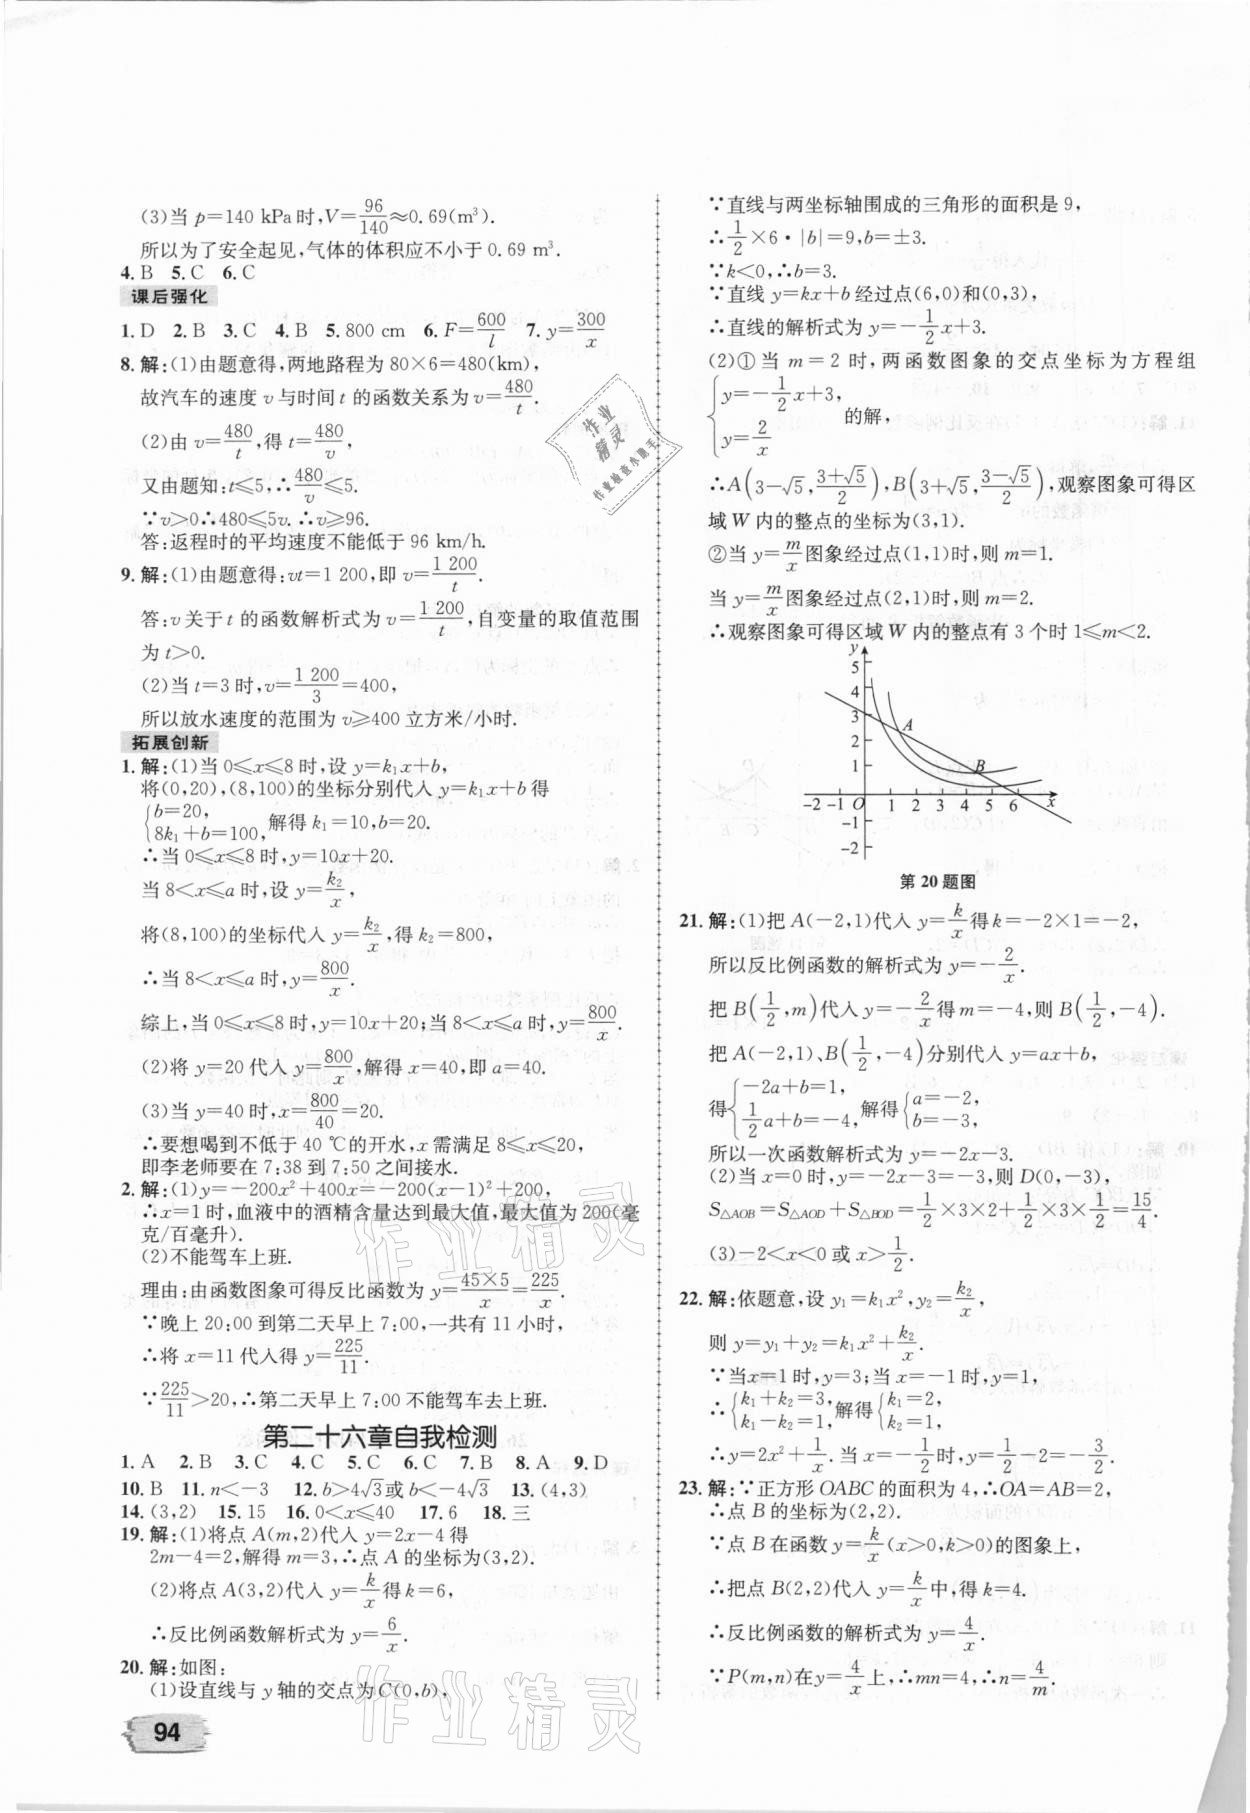 (3)当 p=140 kPa时,V=96/140≈0.69(m³).
所以为了安全起见,气体的体积应不小于 0.69 m³.
4.B 5.C 6.C
课后强化
1.D 2.B 3.C 4.B 5.800 cm 6.F=600/l 7.y=300/x
8.解:(1)由题意得,两地路程为 80×6=480(km),
故汽车的速度 v 与时间 t 的函数关系为 v=480/t.
(2)由 v=480/t,得 t=480/v,
又由题知:t≤5,∴480/v≤5.
∵v>0∴480≤5v.∴v≥96.
答:返程时的平均速度不能低于 96 km/h.
9.解:(1)由题意得:vt=1 200,即 v=1 200/t.
答:v 关于 t 的函数解析式为 v=1 200/t,自变量的取值范围
为 t>0.
(2)当 t=3 时,v=1 200/3=400,
所以放水速度的范围为 v≥400 立方米/小时.
拓展创新
1.解:(1)当 0≤x≤8 时,设 y=k₁x+b,
将(0,20),(8,100)的坐标分别代入 y=k₁x+b 得
{b=20,
8k₁+b=100, 解得 k₁=10,b=20.
∴当 0≤x≤8 时,y=10x+20.
当 8<x≤a 时,设 y=k₂/x,
将(8,100)的坐标代入 y=k₂/x,得 k₂=800,
∴当 8<x≤a 时,y=800/x.
综上,当 0≤x≤8 时,y=10x+20;当 8<x≤a 时,y=800/x.
(2)将 y=20 代入 y=800/x,解得 x=40,即 a=40.
(3)当 y=40 时,x=800/40=20.
∴要想喝到不低于 40 ℃的开水,x 需满足 8≤x≤20,
即李老师要在 7:38 到 7:50 之间接水.
2.解:(1)y=-200x²+400x=-200(x-1)²+200,
∴x=1 时,血液中的酒精含量达到最大值,最大值为 200(毫
克/百毫升).
(2)不能驾车上班.
理由:由函数图象可得反比例函数为 y=45×5/x=225/x,
∵晚上 20:00 到第二天早上 7:00,一共有 11 小时,
∴将 x=11 代入得 y=225/11.
∵225/11>20,∴第二天早上 7:00 不能驾车去上班.
第二十六章自我检测
1.A 2.B 3.C 4.C 5.C 6.C 7.B 8.A 9.D
10.B 11.n<-3 12.b>4√3或 b<-4√3 13.(4,3)
14.(3,2) 15.15 16.0<x≤40 17.6 18.三
19.解:(1)将点 A(m,2)代入 y=2x-4 得
2m-4=2,解得 m=3,∴点 A 的坐标为(3,2).
(2)将点 A(3,2)代入 y=k/x 得 k=6,
∴反比例函数解析式为 y=6/x.
20.解:如图:
(1)设直线与 y 轴的交点为 C(0,b),
94
∵直线与两坐标轴围成的三角形的面积是 9,
∴1/2×6·|b|=9,b=±3.
∵k<0,∴b=3.
∵直线 y=kx+b 经过点(6,0)和(0,3),
∴直线的解析式为 y=-1/2x+3.
(2)①当 m=2 时,两函数图象的交点坐标为方程组
{y=-1/2x+3,
y=2/x 的解,
∴A(3-√5,3+√5/2),B(3+√5,3-√5/2),观察图象可得区
域 W 内的整点的坐标为(3,1).
②当 y=m/x图象经过点(1,1)时,则 m=1.
当 y=m/x图象经过点(2,1)时,则 m=2.
∴观察图象可得区域 W 内的整点有 3 个时 1≤m<2.
y
5
4
3
2
1
-2 -1 O 1 2 3 4 5 6 x
-1
-2
A
B
第 20 题图
21.解:(1)把 A(-2,1)代入 y=k/x得 k=-2×1=-2,
所以反比例函数的解析式为 y=-2/x.
把 B(1/2,m)代入 y=-2/x得 m=-4,则 B(1/2,-4).
把 A(-2,1)、B(1/2,-4)分别代入 y=ax+b,
得{-2a+b=1,
1/2a+b=-4, 解得{a=-2,
b=-3,
所以一次函数解析式为 y=-2x-3.
(2)当 x=0 时,y=-2x-3=-3,则 D(0,-3),
S△AOB=S△AOD+S△BOD=1/2×3×2+1/2×3×1/2=15/4.
(3)-2<x<0 或 x>1/2.
22.解:依题意,设 y₁=k₁x²,y₂=k₂/x,
则 y=y₁+y₂=k₁x²+k₂/x.
∵当 x=1 时,y=3;当 x=-1 时,y=1,
∴{k₁+k₂=3,
k₁-k₂=1, 解得{k₁=2,
k₂=1,
∴y=2x²+1/x.∴当 x=-1/2时,y=1/2-2=-3/2.
23.解:∵正方形 OABC 的面积为 4,∴OA=AB=2,
∴点 B 的坐标为(2,2).
∵点 B 在函数 y=k/x(x>0,k>0)的图象上,
∴把点 B(2,2)代入 y=k/x中,得 k=4.
∴反比例函数的解析式为 y=4/x.
∵P(m,n)在 y=4/x上,∴mn=4,∴n=4/m.
作业精灵
作业精灵